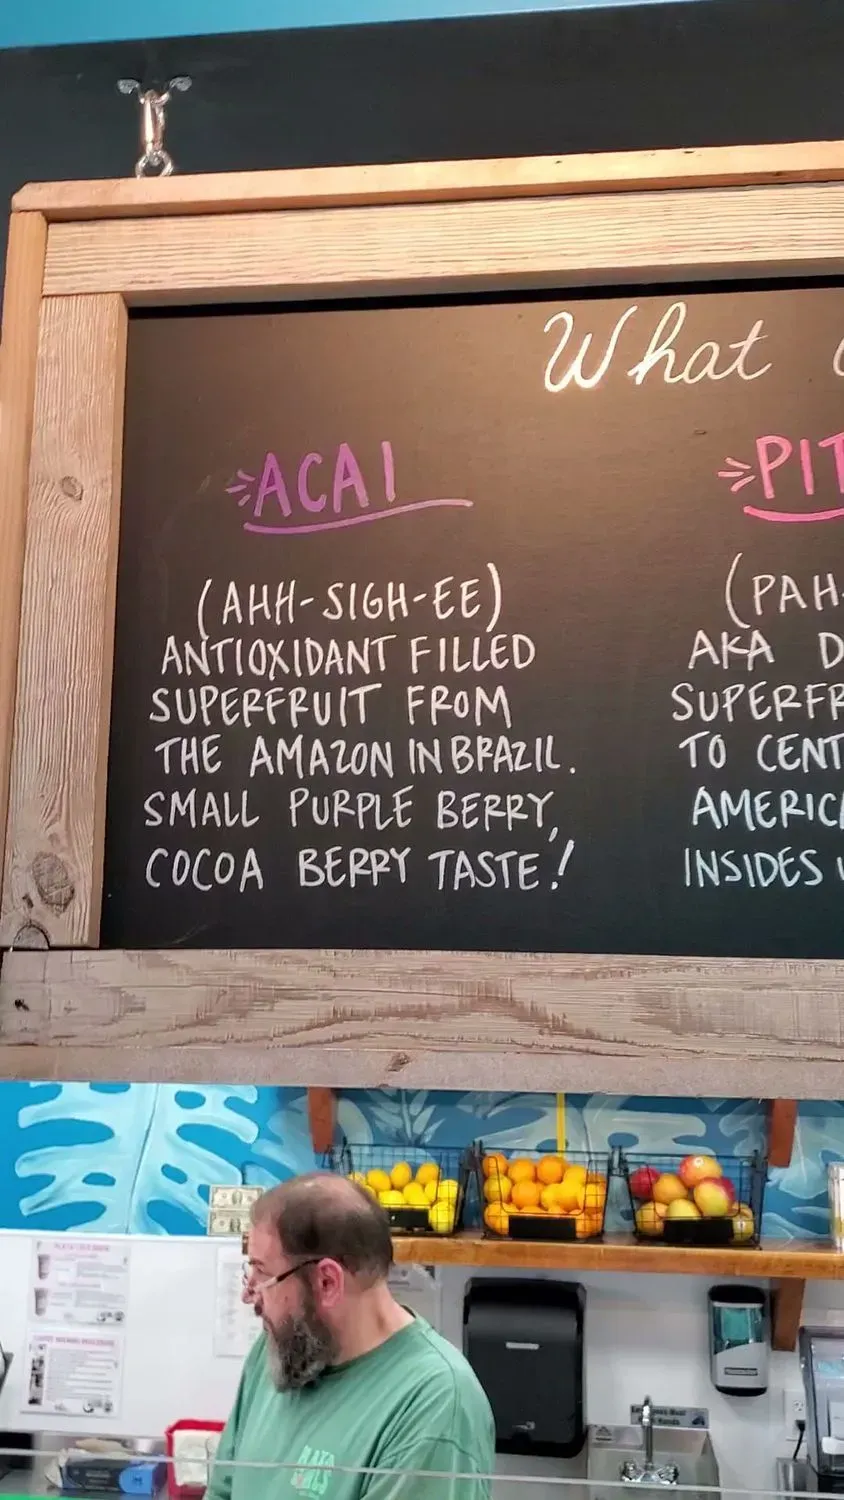 What
ACAI
(AHH-SIGH-EE)
ANTIOXIDANT FILLED
SUPERFRUIT FROM
THE AMAZON IN BRAZIL.
SMALL PURPLE BERRY,
COCOA BERRY TASTE!
PIT
(PAH-
AKA D
SUPERFR
TO CENT
AMERICA
INSIDES